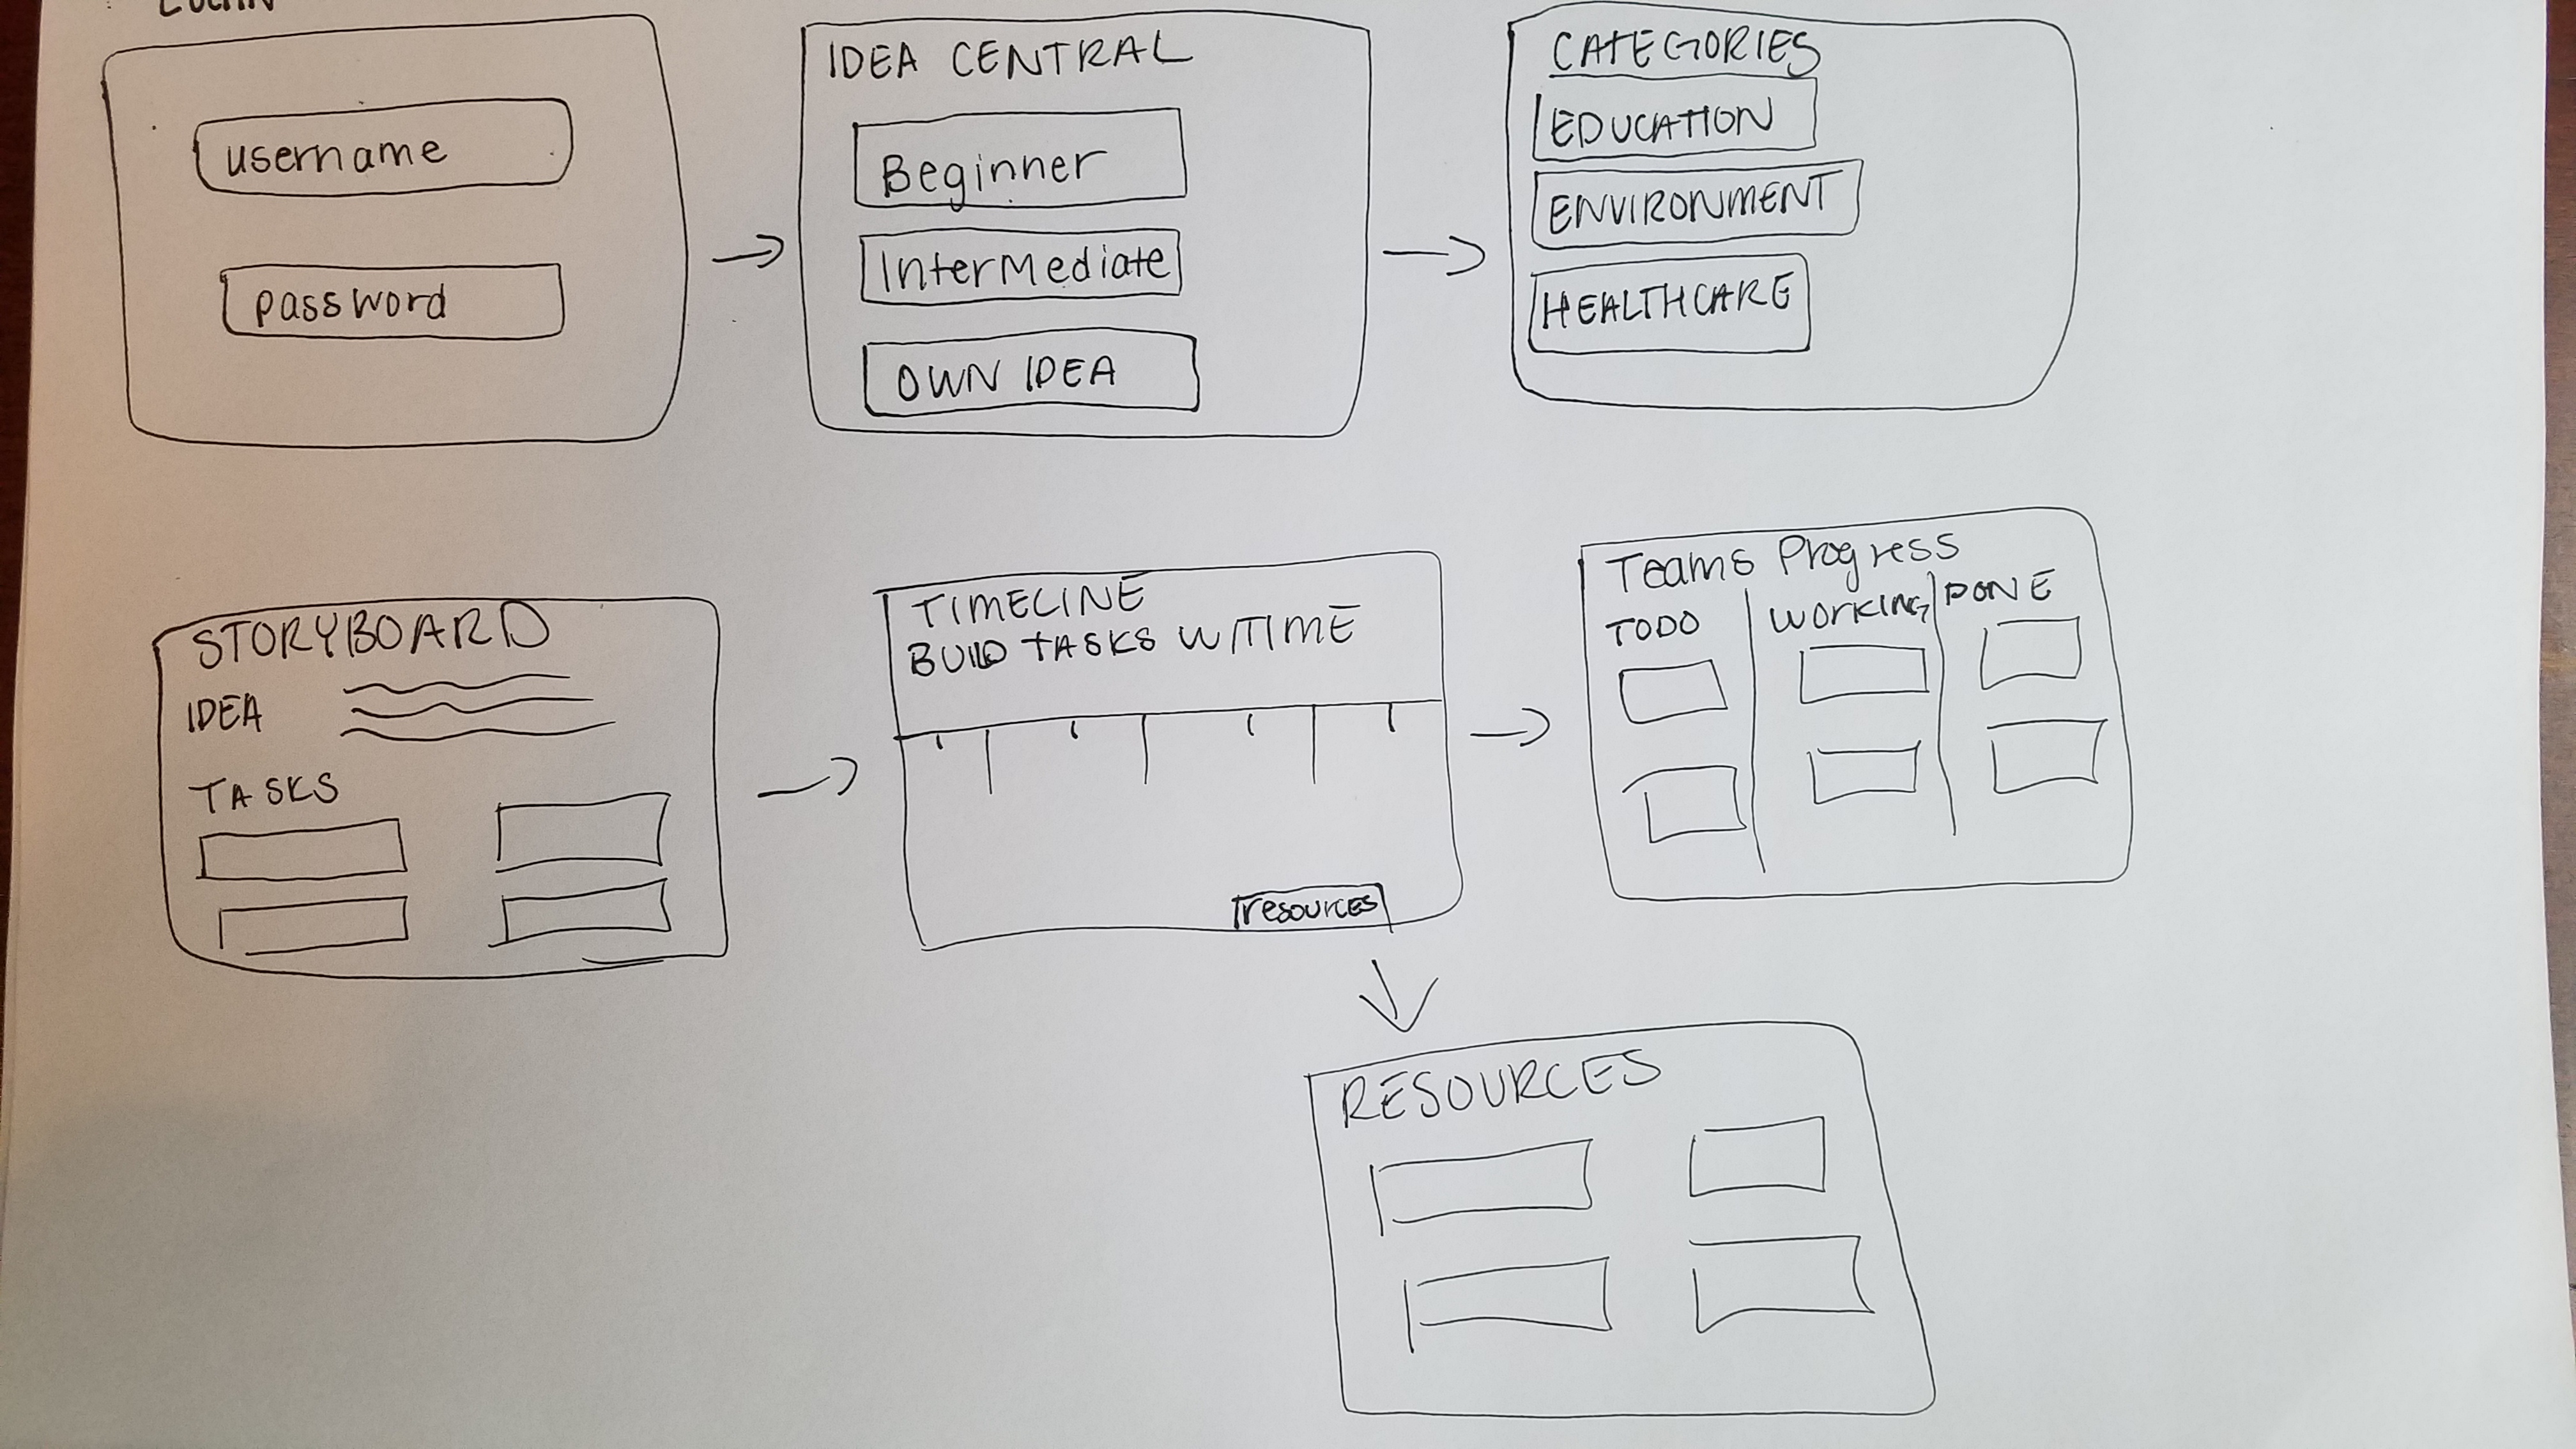 LOGIN
username
password
IDEA CENTRAL
Beginner
Intermediate
OWN IDEA
CATEGORIES
EDUCATION
ENVIRONMENT
HEALTHCARE
STORYBOARD
IDEA
TASKS
TIMELINE
BUILD TASKS W/TIME
resources
Teams Progress
TODO
WORKING
DONE
RESOURCES